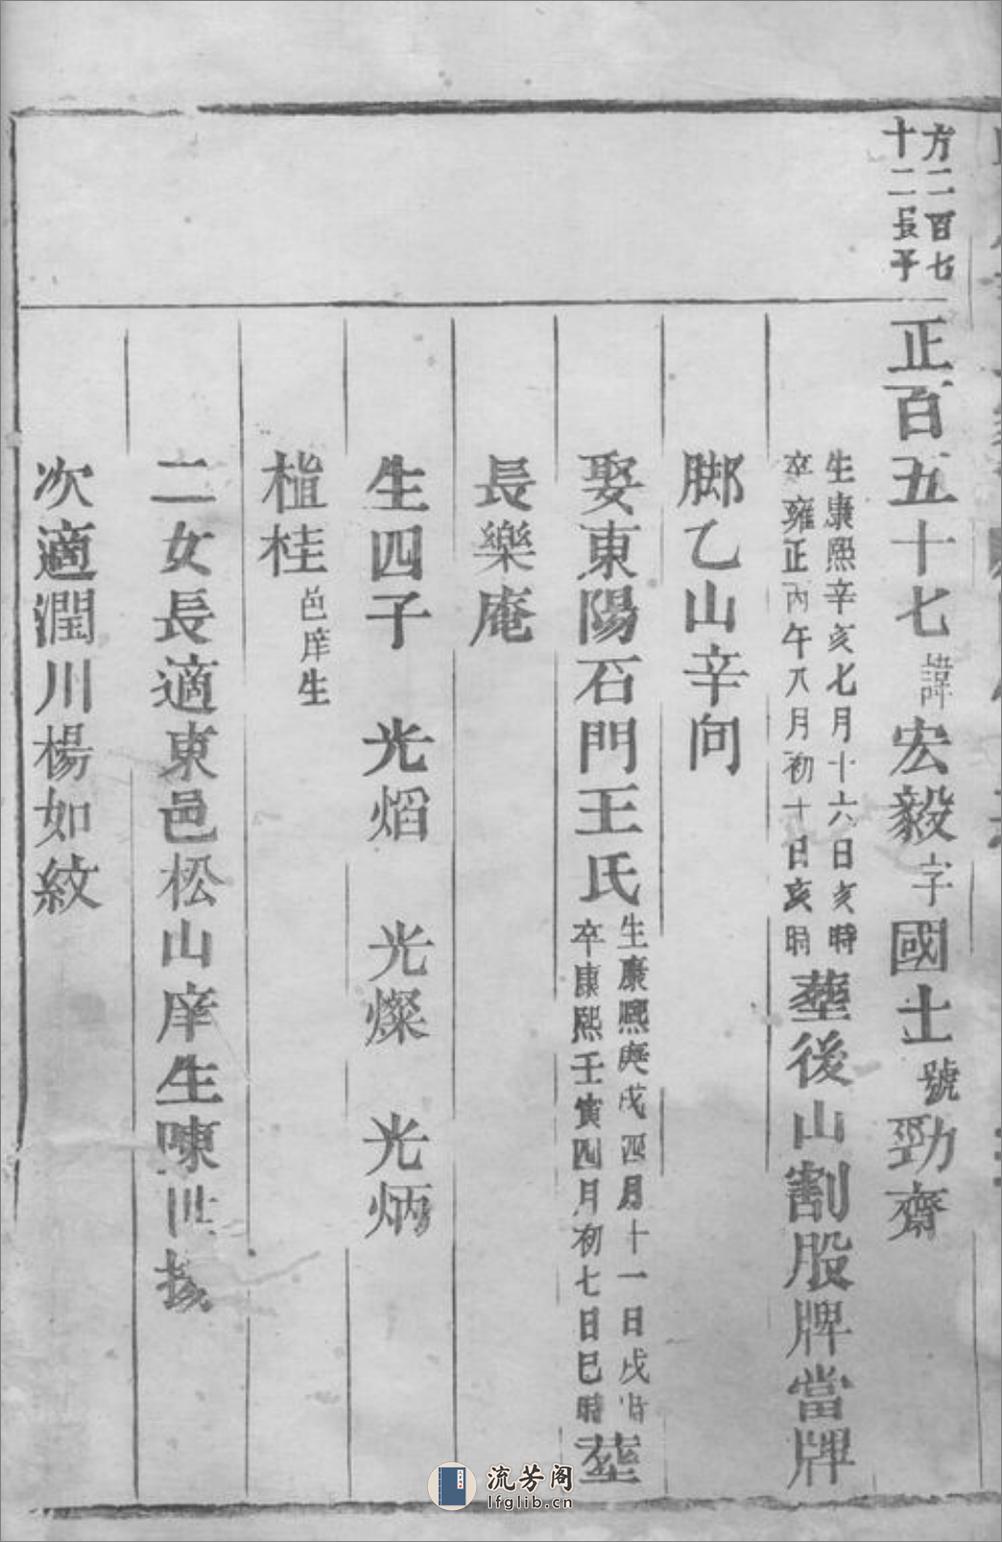 方二百七
十二長子
正百五十七諱宏毅字國士號勁齋
生康熙辛亥七月十六日亥時
卒雍正丙午八月初十日亥時
塟後山割股牌當牌
脚乙山辛向
娶東陽石門王氏
生康熙庚戌四月十一日戌時
卒康熙壬寅四月初七日巳時
塟
長樂庵
生四子 光熖 光燦 光炳
桂邑庠生
二女長適東邑松山庠生陳世
次適潤川楊如紋
流芳阁
lfglib.cn